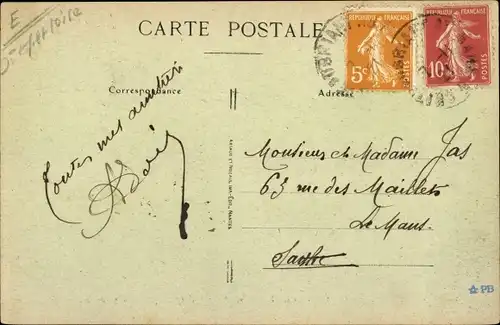 E
CARTE POSTALE
Correspondance
Adresse
REPUBLIQUE FRANÇAISE
5c
POSTES
REPUBLIQUE FRANÇAISE
10c
POSTES
Toutes mes amitiés
Monsieur et Madame Jas
63 rue des Maillets
Le Mans
Sarthe
PB